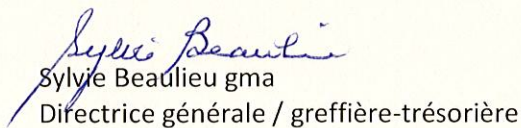 Sylvie Beaulieu
Sylvie Beaulieu gma
Directrice générale / greffière-trésorière